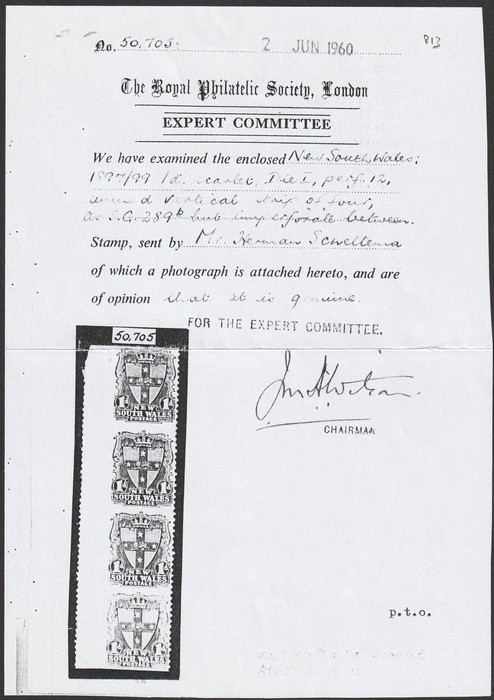 No. 50,705. 2 JUN 1960 813
The Royal Philatelic Society, London
EXPERT COMMITTEE
We have examined the enclosed New South Wales;
1897/99 1d. scarlet, Die I, perf. 12,
unused vertical strip of four,
as S.G. 289b but imperforate between.
Stamp, sent by Mr. Herman
of which a photograph is attached hereto, and are
of opinion that it is genuine.
FOR THE EXPERT COMMITTEE.
50,705
CHAIRMAN
1D 1D
NEW
SOUTH WALES
POSTAGE
1D 1D
NEW
SOUTH WALES
POSTAGE
1D 1D
NEW
SOUTH WALES
POSTAGE
NEW
SOUTH WALES
POSTAGE
p.t.o.